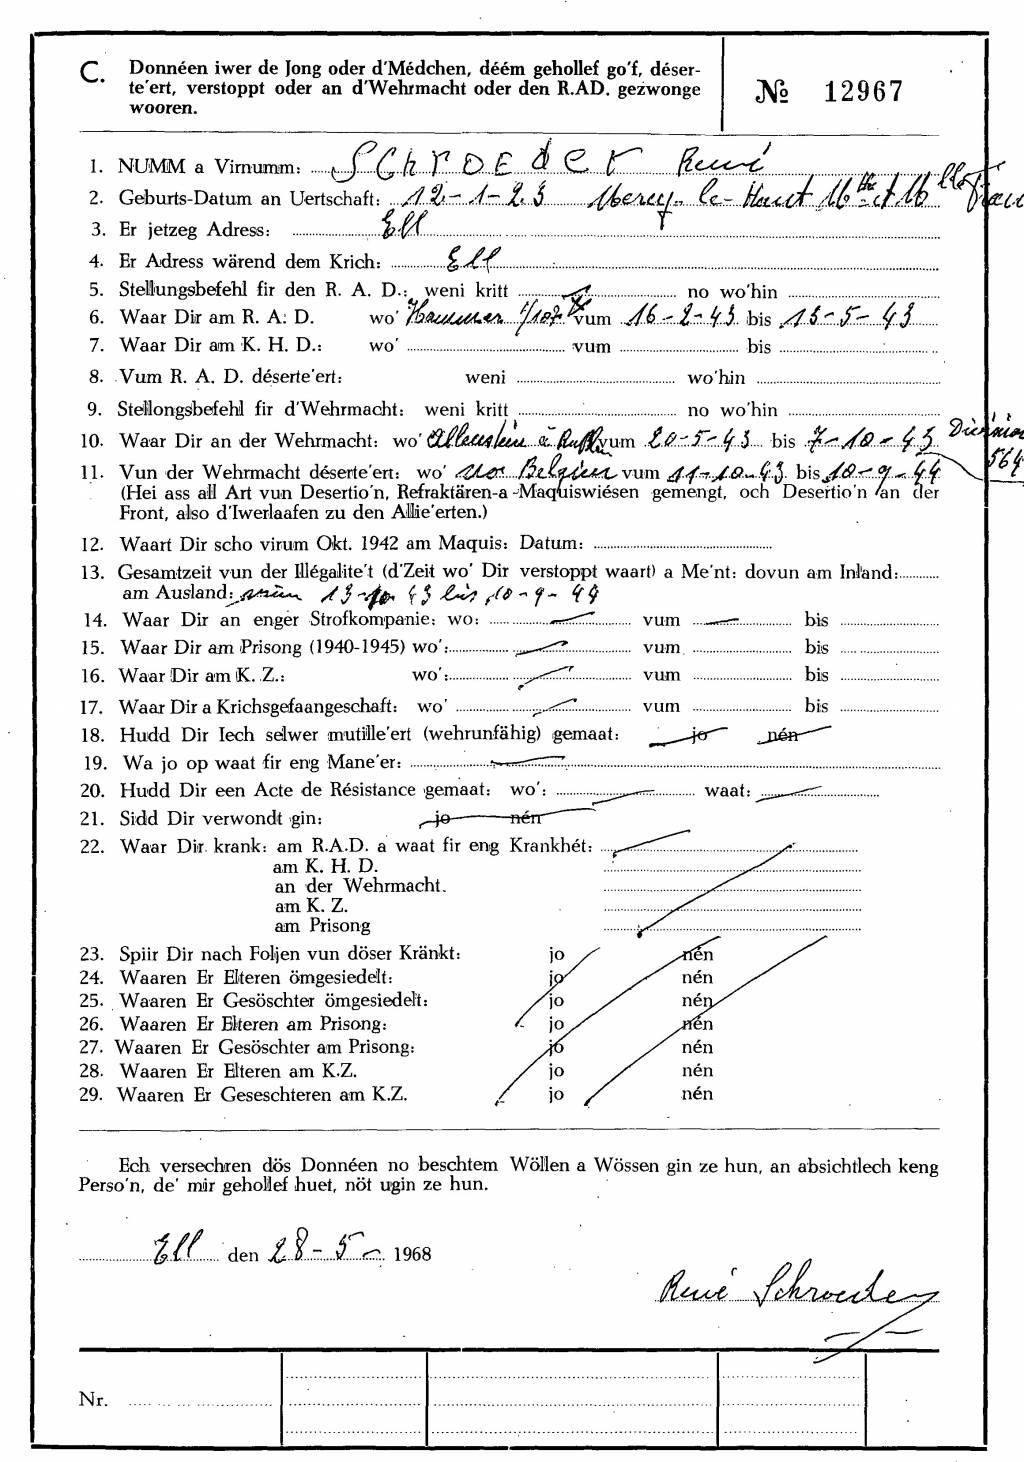 C. Donnéen iwer de Jong oder d'Médchen, déém gehollef go'f, déser-
te'ert, verstoppt oder an d'Wehrmacht oder den R.AD. gezwonge
wooren.
№ 12967
1. NUMM a Virnumm: SCHROEDER René
2. Geburts-Datum an Uertschaft: 12-1-23 Mercy-le-Haut
3. Er jetzeg Adress: Ell
4. Er Adress wärend dem Krich: Ell
5. Stellungsbefehl fir den R. A. D.: weni kritt no wo'hin
6. Waar Dir am R. A. D. wo' Hammer vum 16-2-43 bis 13-5-43
7. Waar Dir am K. H. D.: wo' vum bis
8. Vum R. A. D. déserte'ert: weni wo'hin
9. Stellongsbefehl fir d'Wehrmacht: weni kritt no wo'hin
10. Waar Dir an der Wehrmacht: wo' Allenstein vum 20-5-43 bis 7-10-43 Division
564
11. Vun der Wehrmacht déserte'ert: wo' Belgien vum 11-10-43 bis 10-9-44
(Hei ass all Art vun Desertio'n, Refraktären-a -Maquiswiésen gemengt, och Desertio'n an der
Front, also d'Iwerlaafen zu den Allie'erten.)
12. Waart Dir scho virum Okt. 1942 am Maquis: Datum:
13. Gesamtzeit vun der Illégalite't (d'Zeit wo' Dir verstoppt waart) a Me'nt: dovun am Inland:
am Ausland: vum 13-10 43 bis 10-9-44
14. Waar Dir an enger Strofkompanie: wo: vum bis
15. Waar Dir am Prisong (1940-1945) wo': vum bis
16. Waar Dir am K. Z.: wo': vum bis
17. Waar Dir a Krichsgefaangeschaft: wo' vum bis
18. Hudd Dir Iech selwer mutille'ert (wehrunfähig) gemaat: jo nén
19. Wa jo op waat fir eng Mane'er:
20. Hudd Dir een Acte de Résistance gemaat: wo': waat:
21. Sidd Dir verwondt gin: jo nén
22. Waar Dir krank: am R.A.D. a waat fir eng Krankhét:
am K. H. D.
an der Wehrmacht.
am K. Z.
am Prisong
23. Spiir Dir nach Foljen vun döser Kränkt: jo nén
24. Waaren Er Elteren ömgesiedelt: jo nén
25. Waaren Er Gesöschter ömgesiedelt: jo nén
26. Waaren Er Elteren am Prisong: jo nén
27. Waaren Er Gesöschter am Prisong: jo nén
28. Waaren Er Elteren am K.Z. jo nén
29. Waaren Er Geseschteren am K.Z. jo nén
Ech versechren dös Donnéen no beschtem Wöllen a Wössen gin ze hun, an absichtlech keng
Perso'n, de' mir gehollef huet, nöt ugin ze hun.
Ell den 28-5- 1968
René Schroeder
Nr.